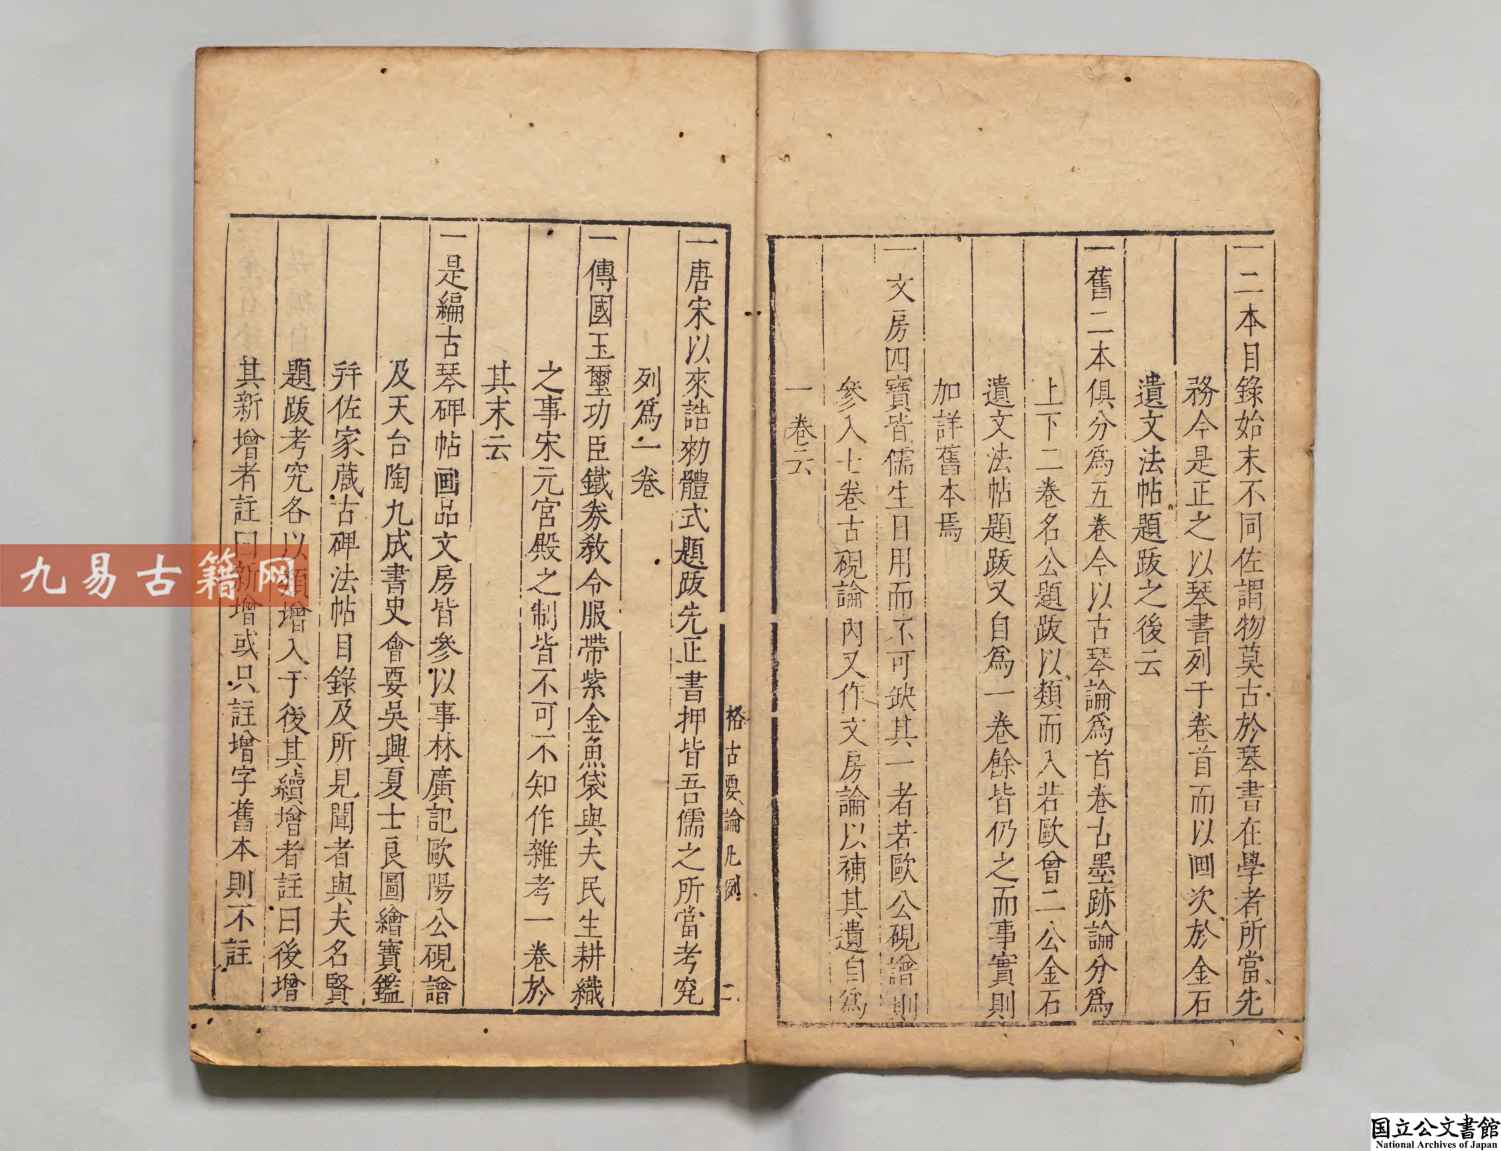 一二本目錄始末不同佐謂物莫古於琴書在學者所當先
務今是正之以琴書列于卷首而以画次於金石
遺文法帖題跋之後云
一舊二本俱分爲五卷今以古琴論爲首卷古墨跡論分爲
上下二卷名公題跋以類而入若歐曾二公金石
遺文法帖題跋又自爲一卷餘皆仍之而事實則
加詳舊本焉
一文房四寶皆儒生日用而不可缺其一者若歐公硯譜則
參入七卷古硯論內又作文房論以補其遺自爲
一卷云
一唐宋以來誥勑體式題跋先正書押皆吾儒之所當考究
列爲一卷
一傳國玉璽功臣鐵券敎令服帶紫金魚袋與夫民生耕織
之事宋元宮殿之制皆不可不知作雜考一卷於
其末云
一是編古琴碑帖画品文房皆參以事林廣記歐陽公硯譜
及天台陶九成書史會要吳興夏士良圖繪寶鑑
幷佐家蔵古碑法帖目錄及所見聞者與夫名賢
題跋考究各以類增入于後其續增者註曰後增
其新增者註曰新增或只註增字舊本則不註
格古要論凡例
二
九易古籍网
国立公文書館
National Archives of Japan